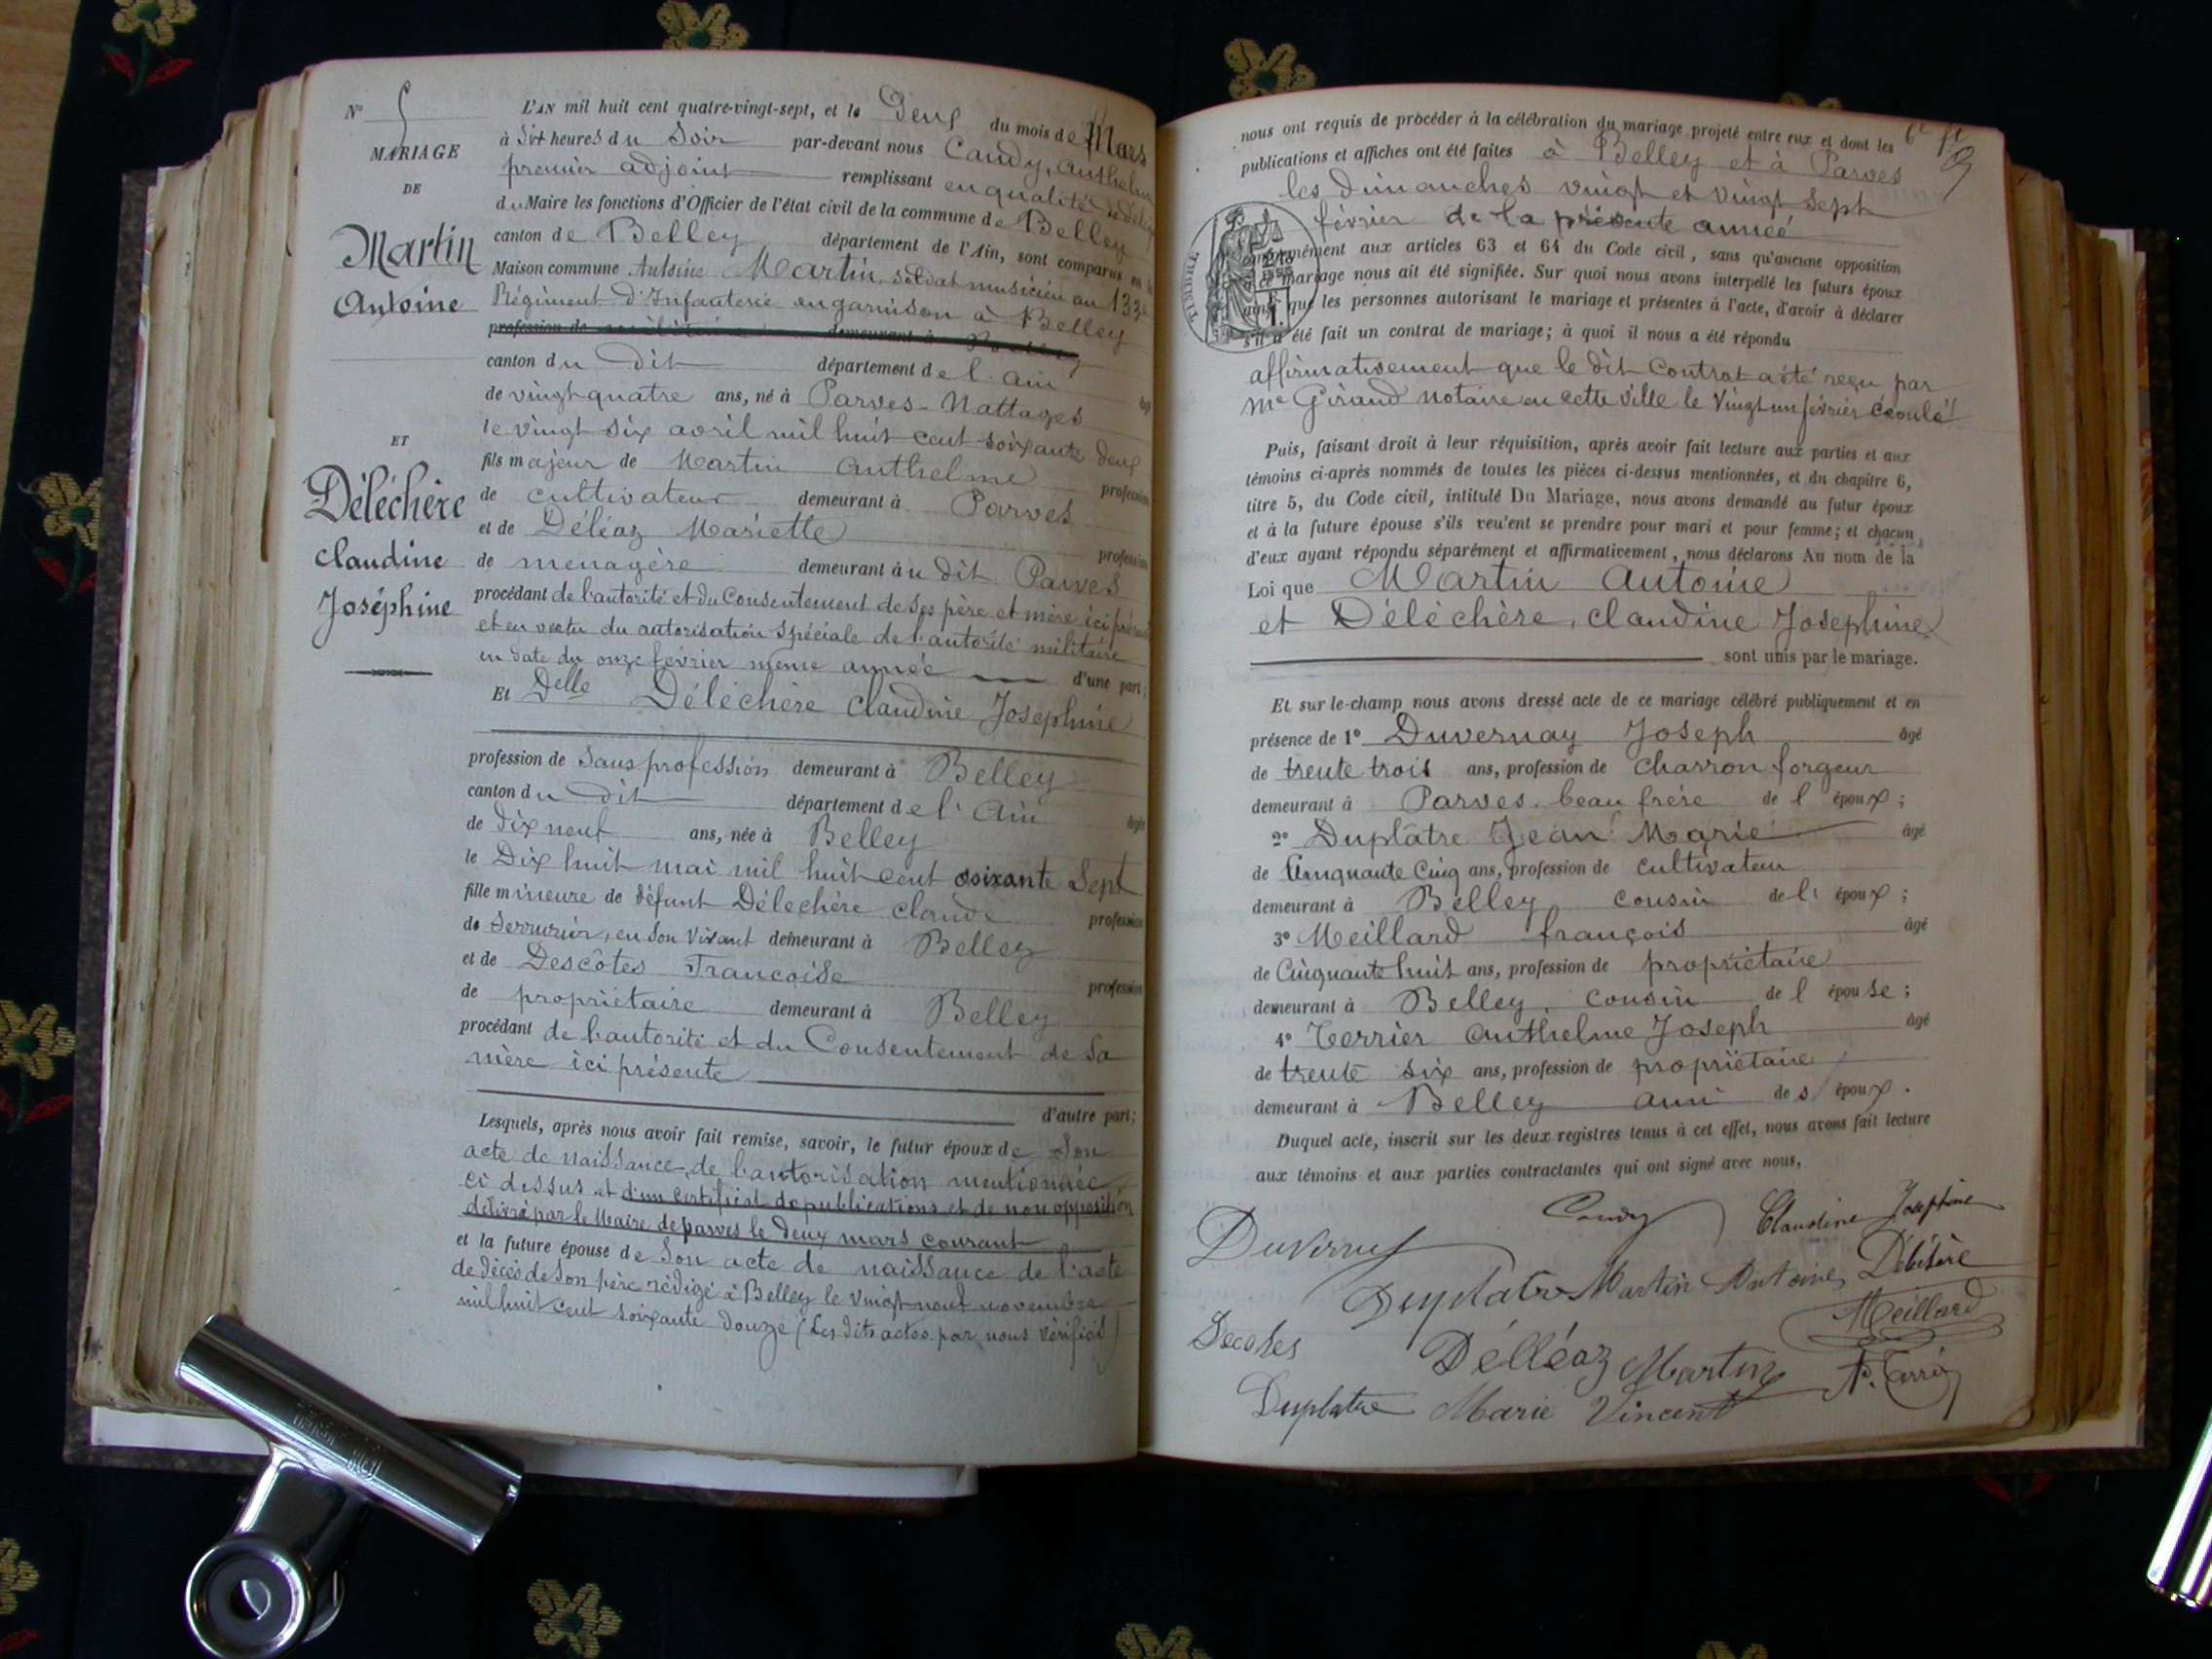 N° 5
MARIAGE
DE
Martin
Antoine
ET
Déléchère
Claudine
Joséphine
L'AN mil huit cent quatre-vingt-sept, et le Deux du mois de Mars
à Six heures du Soir par-devant nous Candy, Anthelme
premier adjoint remplissant en qualité de délégué
du Maire les fonctions d'Officier de l'état civil de la commune de Belley
canton de Belley département de l'Ain, sont comparus en la
Maison commune Antoine Martin, Soldat musicien au 133e
Régiment d'Infanterie en garnison à Belley
profession de militaire demeurant à Belley
canton du dit département de l'Ain âgé
de vingt-quatre ans, né à Parves-Nattages
le vingt six avril mil huit cent soixante deux
fils majeur de Martin Anthelme profession
de cultivateur demeurant à Parves
et de Déléaz Mariette profession
de menagère demeurant à u dit Parves
procédant de l'autorité et du Consentement de Ses père et mère ici présents
et en vertu du autorisation Spéciale de l'autorité militaire
en date du onze février même année d'une part;
Et Delle Déléchère Claudine Josephine
profession de Sans profession demeurant à Belley
canton du dit département de l'Ain âgée
de Dix neuf ans, née à Belley
le Dix huit mai mil huit cent soixante Sept
fille mineure de défunt Délechère Claude profession
de Serrurier, en Son Vivant demeurant à Belley
et de Descôtes Francoise profession
de propriétaire demeurant à Belley
procédant de l'autorité et du Consentement de Sa
mère ici présente
d'autre part;
Lesquels, après nous avoir fait remise, savoir, le futur époux de Son
acte de naissance, de l'autorisation mentionnée
ci dessus et d'un certificat de publications et de non opposition
délivré par le Maire de parves le deux mars courant
et la future épouse de Son acte de naissance de l'acte
de décès de Son père rédigé à Belley le vingt neuf novembre
mil huit cent soixante douze (Les dits actes par nous vérifiés)
nous ont requis de procéder à la célébration du mariage projeté entre eux et dont les
publications et affiches ont été faites à Belley et à Parves
les dimanches vingt et vingt Sept
février de la présente année
conformément aux articles 63 et 64 du Code civil, sans qu'aucune opposition
à ce mariage nous ait été signifiée. Sur quoi nous avons interpellé les futurs époux
ainsi que les personnes autorisant le mariage et présentes à l'acte, d'avoir à déclarer
s'il a été fait un contrat de mariage; à quoi il nous a été répondu
TIMBRE
affirmativement que le dit Contrat a été reçu par
Me Giraud notaire en cette ville le Vingt un février écoulé
Puis, faisant droit à leur réquisition, après avoir fait lecture aux parties et aux
témoins ci-après nommés de toutes les pièces ci-dessus mentionnées, et du chapitre 6,
titre 5, du Code civil, intitulé Du Mariage, nous avons demandé au futur époux
et à la future épouse s'ils veu'ent se prendre pour mari et pour femme; et chacun
d'eux ayant répondu séparément et affirmativement, nous déclarons Au nom de la
Loi que Martin Antoine
et Déléchère, Claudine Josephine
sont unis par le mariage.
Et sur-le-champ nous avons dressé acte de ce mariage célébré publiquement et en
présence de 1° Duvernay Joseph âgé
de trente trois ans, profession de charron forgeur
demeurant à Parves. beau frère de l'époux;
2° Duplâtre Jean Marie âgé
de Cinquante Cinq ans, profession de cultivateur
demeurant à Belley cousin de l'époux;
3° Meillard françois âgé
de Cinquante huit ans, profession de propriétaire
demeurant à Belley, Cousin de l'épouse;
4° Terrier Anthelme Joseph âgé
de trente six ans, profession de propriétaire
demeurant à Belley ami des époux.
Duquel acte, inscrit sur les deux registres tenus à cet effet, nous avons fait lecture
aux témoins et aux parties contractantes qui ont signé avec nous,
Candy Claudine Josephine
Duvernay Déléchère
Duplatre Martin Antoine
Meillard
Decotes Délléaz Martin
Duplatre Marie Vincent